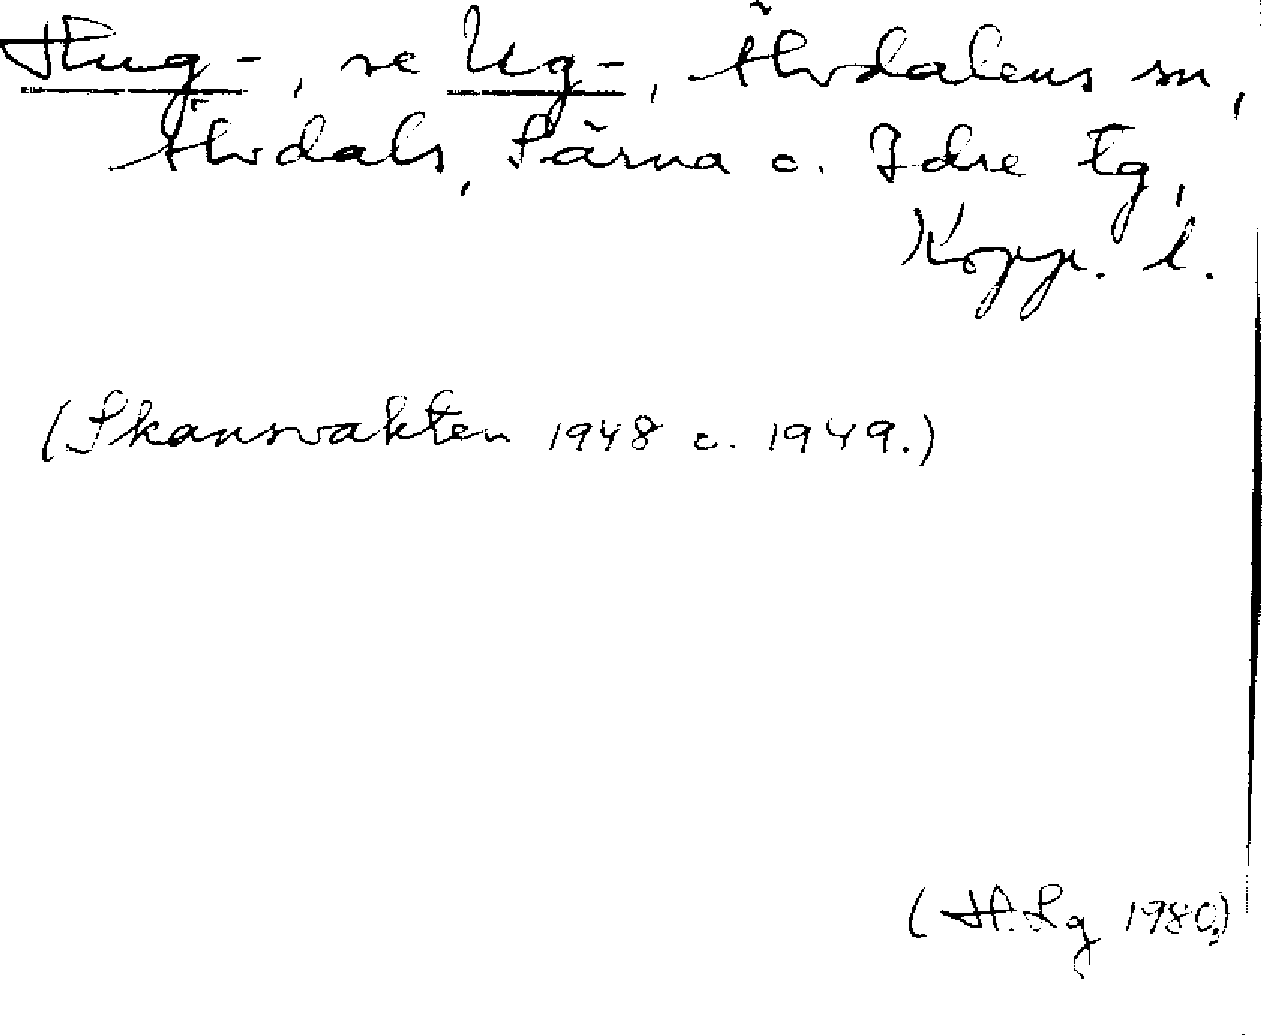 Hug-, se Ug-, Älvdalens sn,
Älvdals, Särna o. Idre tg,
Kopp. l.
(Skansvakten 1948 o. 1949.)
(H. Lg 1980)